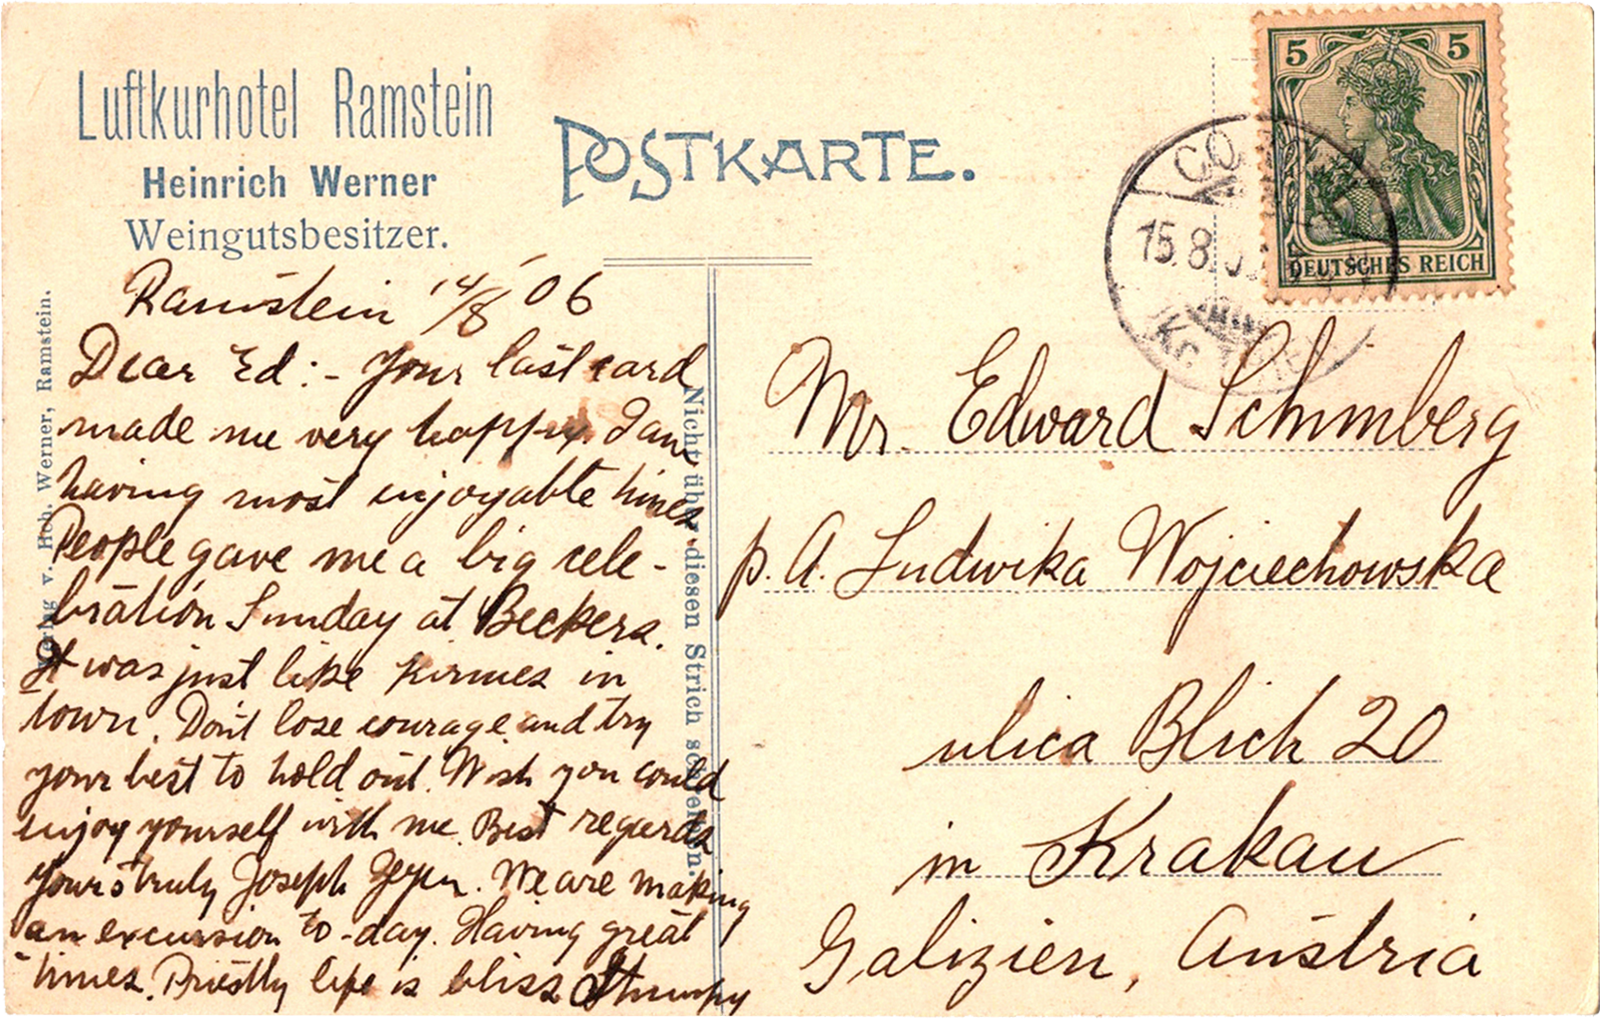 Luftkurhotel Ramstein
Heinrich Werner
Weingutsbesitzer.
POSTKARTE.
5 5
DEUTSCHES REICH
15.8.
Verlag v. Hch. Werner, Ramstein.
Nicht über diesen Strich schreiben.
Ramstein 14/8 '06
Dear Ed:- Your last card
made me very happy. I am
having most enjoyable times
People gave me a big cele-
bration Sunday at Beckers.
It was just like Kirmes in
town. Don't lose courage and try
your best to hold out. Wish you could
enjoy yourself with me. Best regards
Yours truly Joseph. We are making
an excursion to-day. Having great
times. Priestly life is bliss
Mr. Edward Schimberg
p. A. Ludwika Wojciechowska
ulica Blich 20
in Krakau
Galizien, Austria